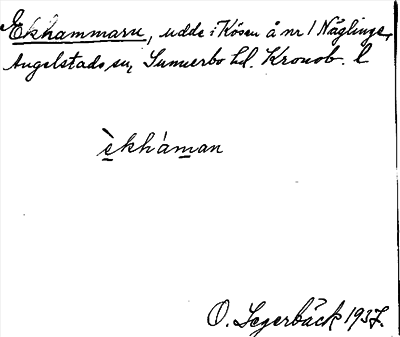 Ekhammaru, udde i Kösen å nr 1 Näglinge,
Angelstads sn, Sunnerbo hd. Kronob. l
èkháman
O. Segerbäck 1937.